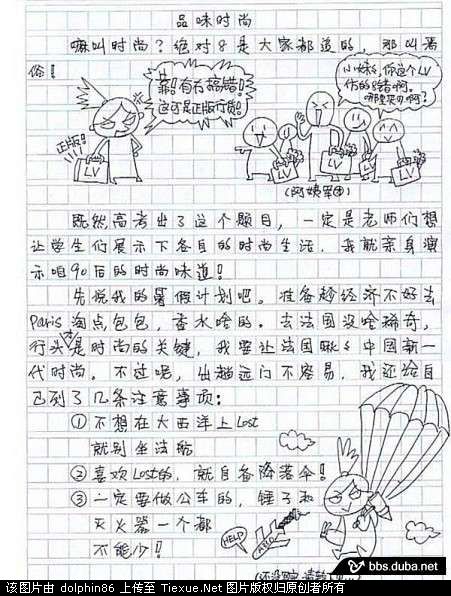 品味时尚
嘛叫时尚？绝对8是大家都道的，那叫恶
俗！
靠!有冇搞错!
这可是正版行货!
正版!
LV
小妹,你这个LV
仿的8错啊。
哪里买的啊?
LV
LV
LV
LV
(阿姨军团)
既然高考出了这个题目，一定是老师们想
让学生们展示下各自的时尚生活，我就亲身演
示咱90后的时尚味道!
先说我的暑假计划吧。准备趁经济不好去
Paris淘点包包，香水啥的。去法国没啥稀奇，
行头又是时尚的关键，我要让法国瞅瞅中国新一
代时尚。不过呢，出趟远门不容易，我还给自
己列了几条注意事项：
①不想在大西洋上Lost
就别坐法航
②喜欢Lost的，就自备降落伞!
③一定要做公车的，锤子和
灭火器一个都
不能少!
HELP
(还没完,请
bbs.duba.net
该图片由 dolphin86 上传至 Tiexue.Net 图片版权归原创者所有